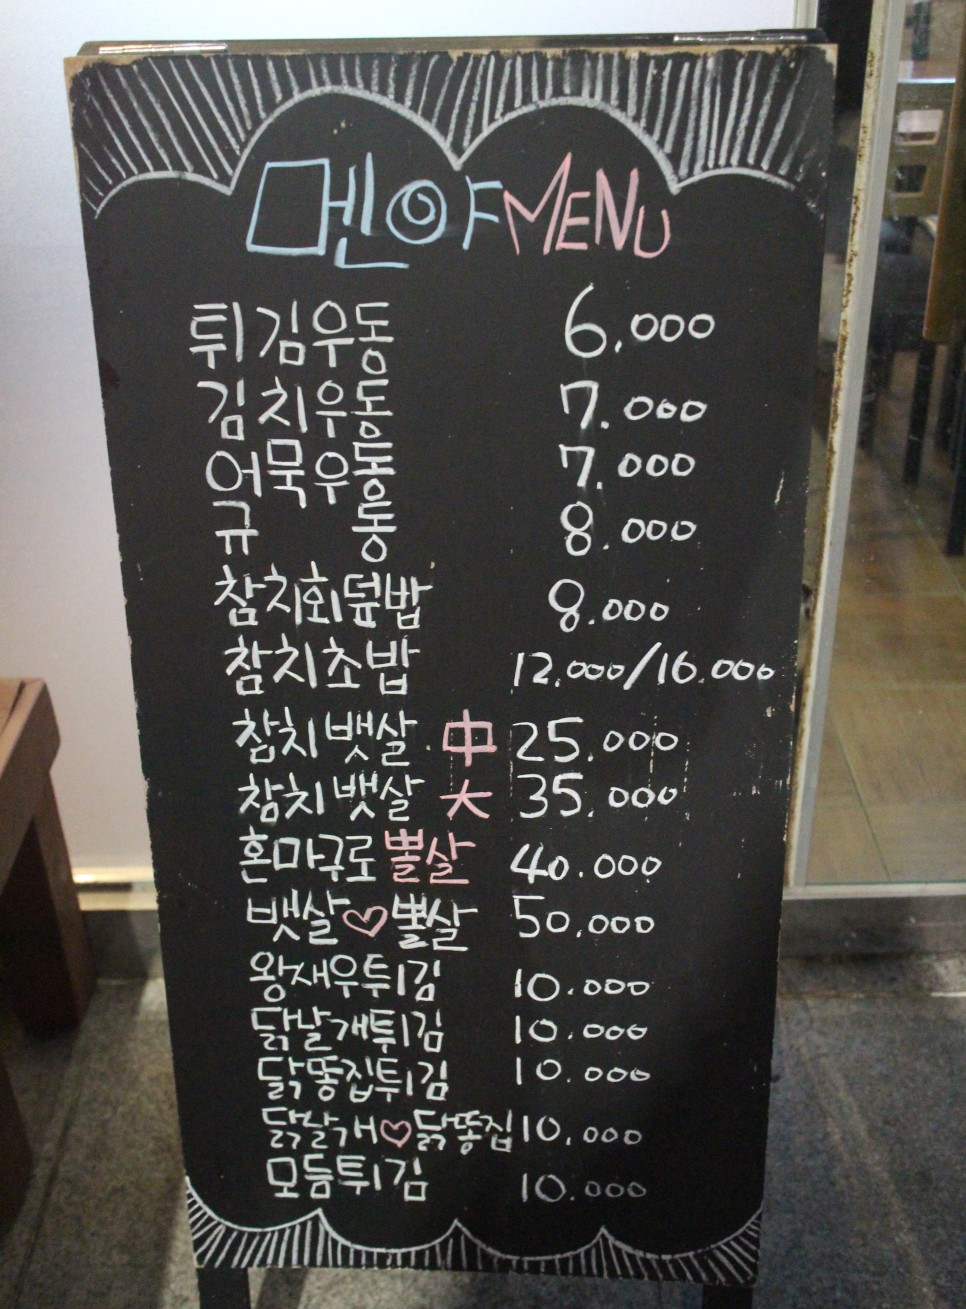 멘야 MENU
튀김우동 6.000
김치우동 7.000
어묵우동 7.000
규동 8.000
참치회덮밥 8.000
참치초밥 12.000/16.000
참치뱃살 中 25.000
참치뱃살 大 35.000
혼마구로뽈살 40.000
뱃살♡뽈살 50.000
왕새우튀김 10.000
닭날개튀김 10.000
닭똥집튀김 10.000
닭날개♡닭똥집 10.000
모듬튀김 10.000